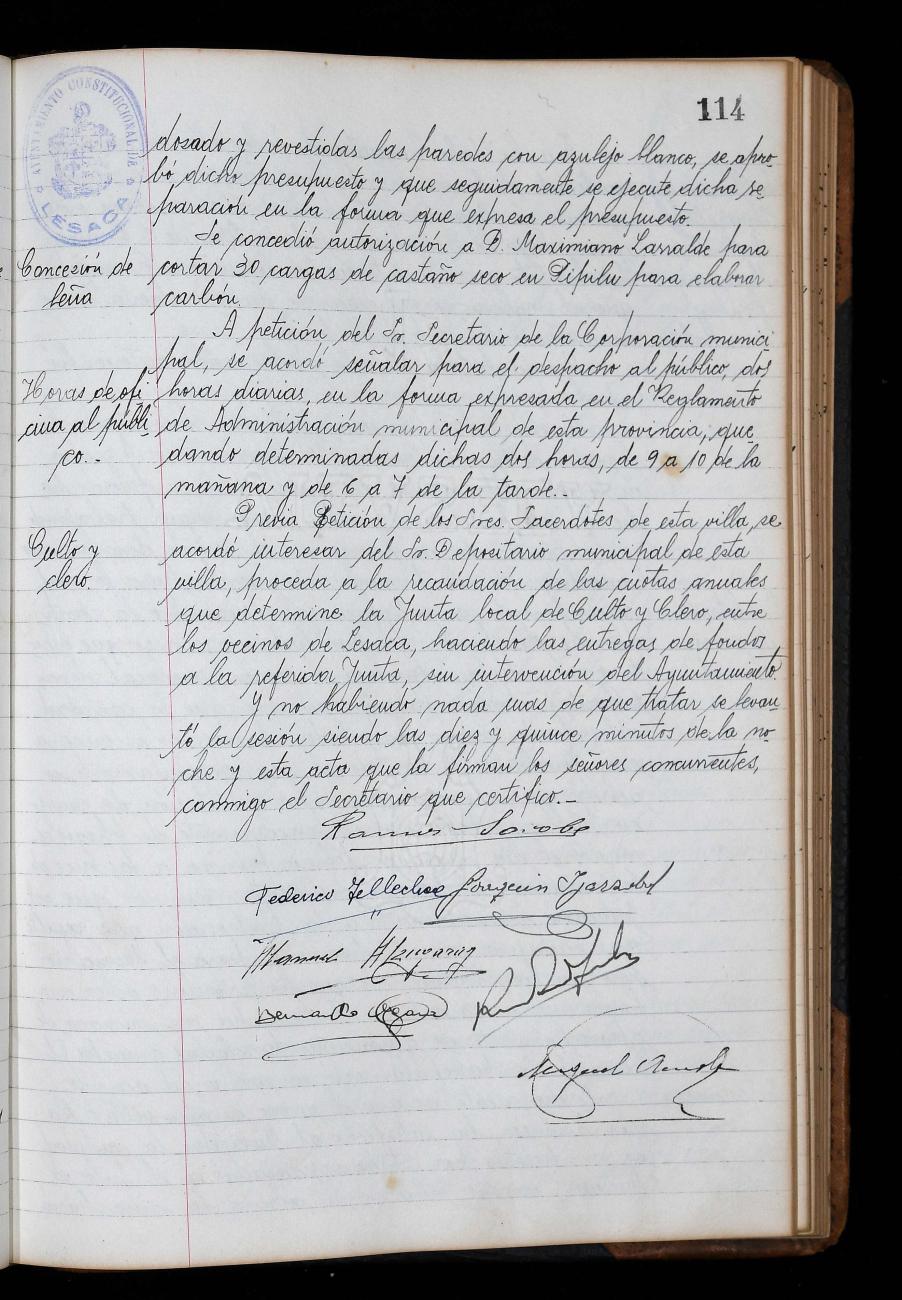 114
AYUNTAMIENTO CONSTITUCIONAL DE
LESACA
dosado y revestidas las paredes con azulejo blanco, se apro-
bó dicho presupuesto y que seguidamente se ejecute dicha re-
paración en la forma que expresa el presupuesto.
Concesión de
leña
Se concedió autorización a D. Maximiano Larralde para
cortar 30 cargas de castaño seco en Pipilu para elaborar
carbón.
Horas de ofi
cina al públi-
co.-
A petición del Sr. Secretario de la Corporación munici
pal, se acordó señalar para el despacho al público, dos
horas diarias, en la forma expresada en el Reglamento
de Administración municipal de esta provincia, que-
dando determinadas dichas dos horas, de 9 a 10 de la
mañana y de 6 a 7 de la tarde.-
Culto y
clero.
Previa Petición de los Sres. Sacerdotes de esta villa, se
acordó interesar del Sr. Depositario municipal de esta
villa, proceda a la recaudación de las cuotas anuales
que determine la Junta local de Culto y Clero, entre
los vecinos de Lesaca, haciendo las entregas de fondos
a la referida Junta, sin intervención del Ayuntamiento.
Y no habiendo nada mas de que tratar se levan-
tó la sesión siendo las diez y quince minutos de la no-
che y esta acta que la firman los señores concurrentes,
conmigo el Secretario que certifico.-
Federico Tellechea Joaquin
Manuel
Bernardo
Miguel